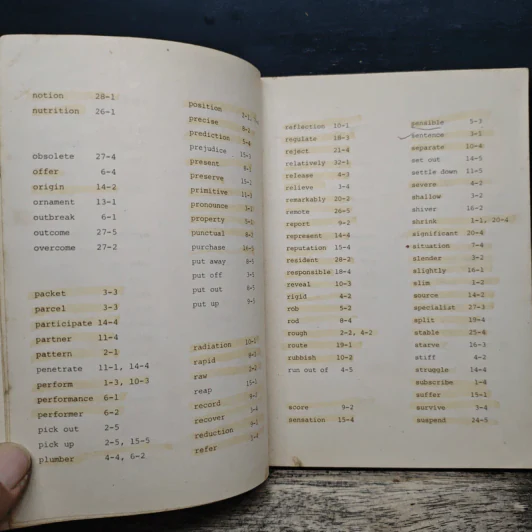 notion 28-1
nutrition 26-1
obsolete 27-4
offer 6-4
origin 14-2
ornament 13-1
outbreak 6-1
outcome 27-5
overcome 27-2
packet 3-3
parcel 3-3
participate 14-4
partner 11-4
pattern 2-1
penetrate 11-1, 14-4
perform 1-3, 10-3
performance 6-1
performer 6-2
pick out 2-5
pick up 2-5, 15-5
plumber 4-4, 6-2
position
precise
prediction
prejudice
present
preserve
primitive
pronounce
property
punctual
purchase
put away
put off
put out
put up
radiation
rapid
raw
reap
record
recover
reduction
refer
reflection 10-1
regulate 18-3
reject 21-4
relatively 32-1
release 4-3
relieve 3-4
remarkably 20-2
remote 26-5
report 9-2
represent 14-4
reputation 15-4
resident 28-2
responsible 18-4
reveal 10-3
rigid 4-2
rob 5-2
rod 8-4
rough 2-2, 4-2
route 19-1
rubbish 10-2
run out of 4-5
score 9-2
sensation 15-4
sensible 5-3
sentence 3-5
separate 10-4
set out 14-5
settle down 11-5
severe 4-2
shallow 3-2
shiver 16-2
shrink 1-1, 20-4
significant 20-4
situation 7-4
slender 3-2
slightly 16-1
slim 1-2
source 14-2
specialist 27-3
split 19-4
stable 25-4
starve 16-3
stiff 4-2
struggle 14-4
subscribe 1-4
suffer 15-1
survive 3-4
suspend 24-5